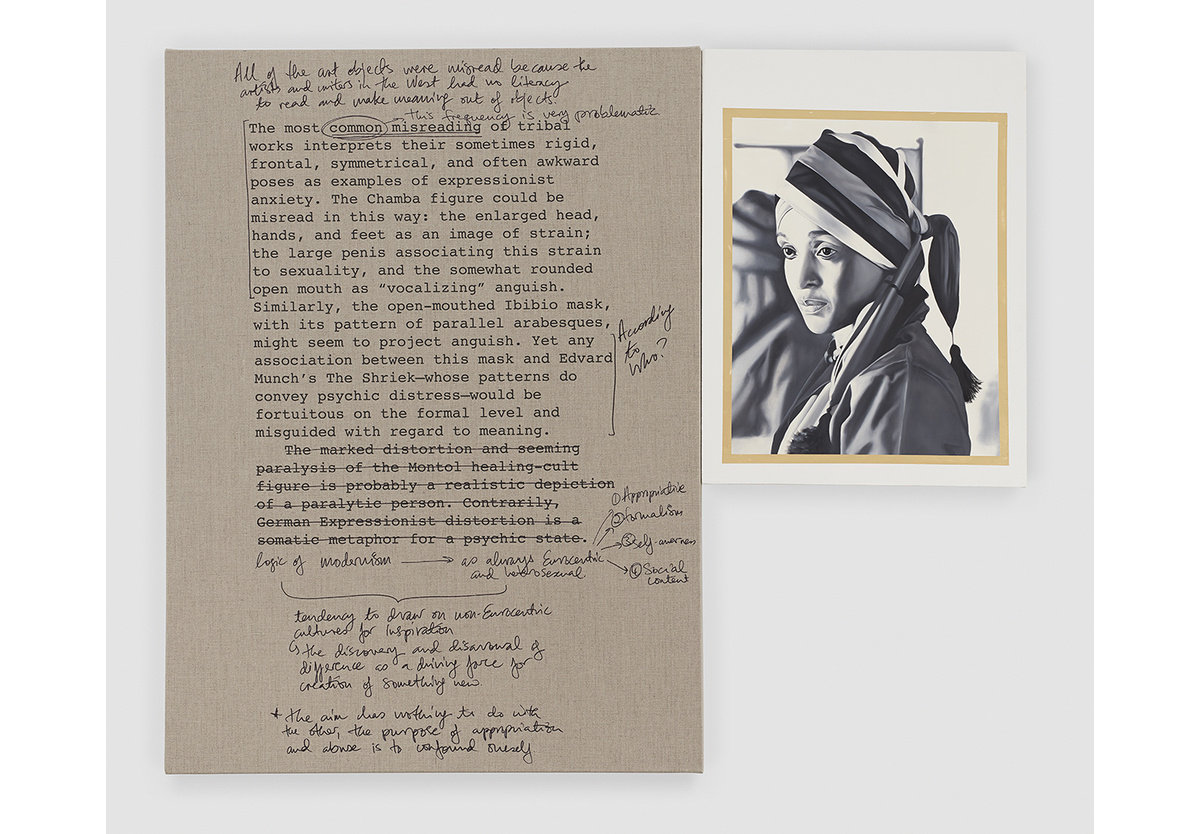 All of the art objects were misread because the
artists and writers in the West had no literacy
to read and make meaning out of objects.
this frequency is very problematic
The most common misreading of tribal
works interprets their sometimes rigid,
frontal, symmetrical, and often awkward
poses as examples of expressionist
anxiety. The Chamba figure could be
misread in this way: the enlarged head,
hands, and feet as an image of strain;
the large penis associating this strain
to sexuality, and the somewhat rounded
open mouth as “vocalizing” anguish.
Similarly, the open-mouthed Ibibio mask,
with its pattern of parallel arabesques,
might seem to project anguish. Yet any
association between this mask and Edvard
Munch’s The Shriek—whose patterns do
convey psychic distress—would be
fortuitous on the formal level and
misguided with regard to meaning.
According
to
Who?
The marked distortion and seeming
paralysis of the Montol healing-cult
figure is probably a realistic depiction
of a paralytic person. Contrarily,
German Expressionist distortion is a
somatic metaphor for a psychic state.
logic of modernism → as always Eurocentric
and heterosexual
① Appropriative
② formalism
③ self-awareness
④ Social
content
tendency to draw on non-Eurocentric
cultures for Inspiration
↳ the discovery and disavowal of
difference as a driving force for
creation of something new.
* the aim has nothing to do with
the other, the purpose of appropriation
and abuse is to confound oneself